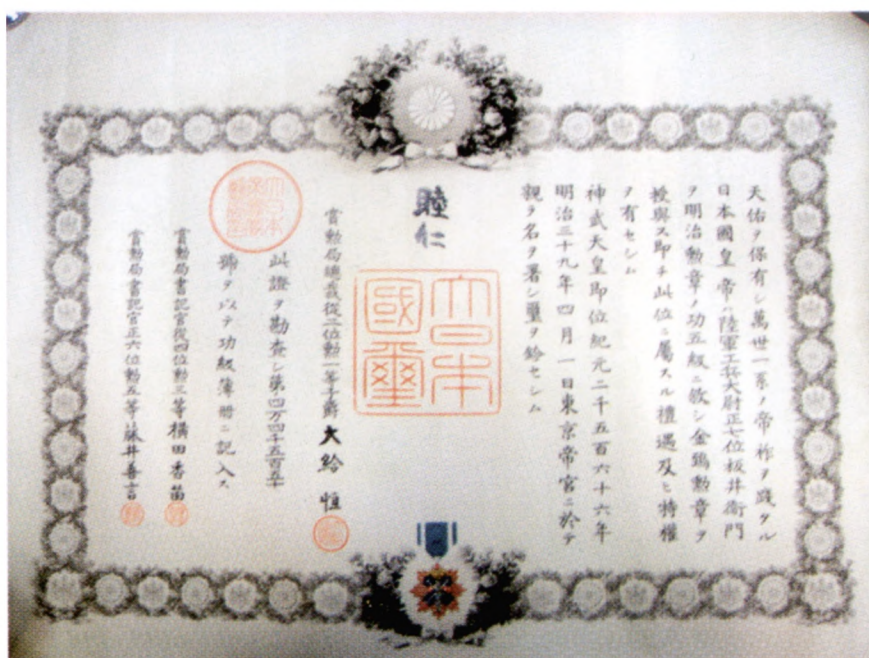 天佑ヲ保有シ萬世一系ノ帝祚ヲ踐タル
日本國皇帝ハ陸軍工兵大尉正七位板井衛門
ヲ明治勲章ノ功五級ニ敘シ金鵄勲章ヲ
授與ス即チ此位ニ屬スル禮遇及ヒ特權
ヲ有セシム
神武天皇即位紀元二千五百六十六年
明治三十九年四月一日東京帝宮ニ於テ
親ラ名ヲ署シ璽ヲ鈐セシム
睦仁
大日本國璽
賞勲局總裁從二位勲一等子爵大給恒
此證ヲ勘査シ第四万四千五百五十
號ヲ以テ功級簿册ニ記入ス
賞勲局書記官從四位勲三等横田香苗
賞勲局書記官正六位勲五等藤井善言